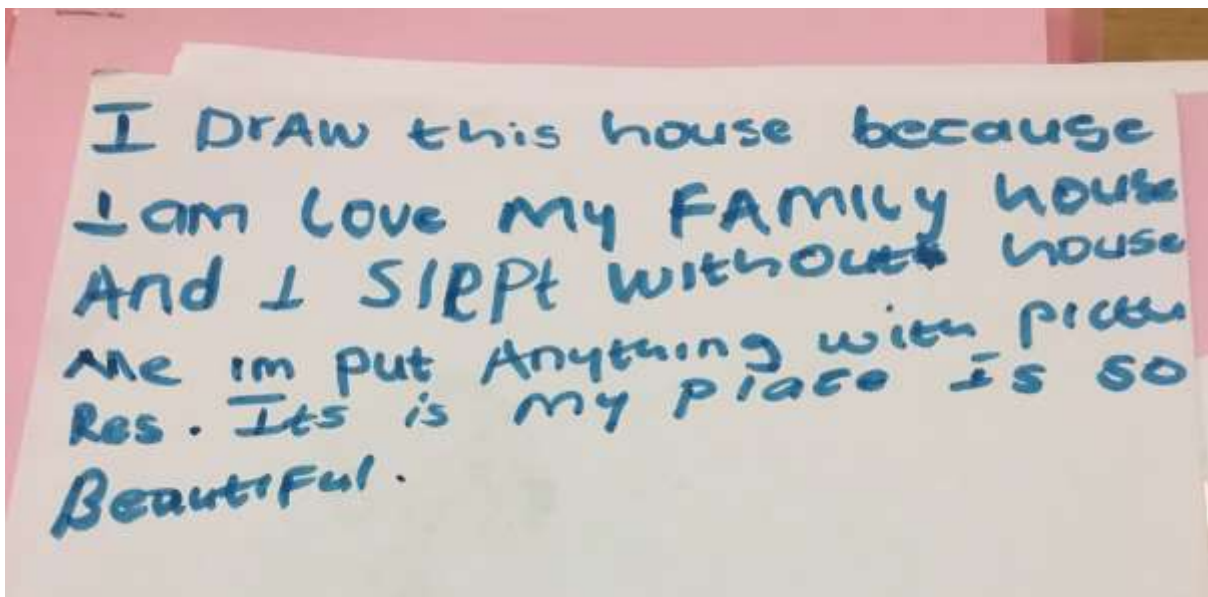 I DrAW this house because
I am Love my FAMILy house
And I Slept without house
Me im put Anything with pictu
Res. Its is my place Is so
Beautiful.